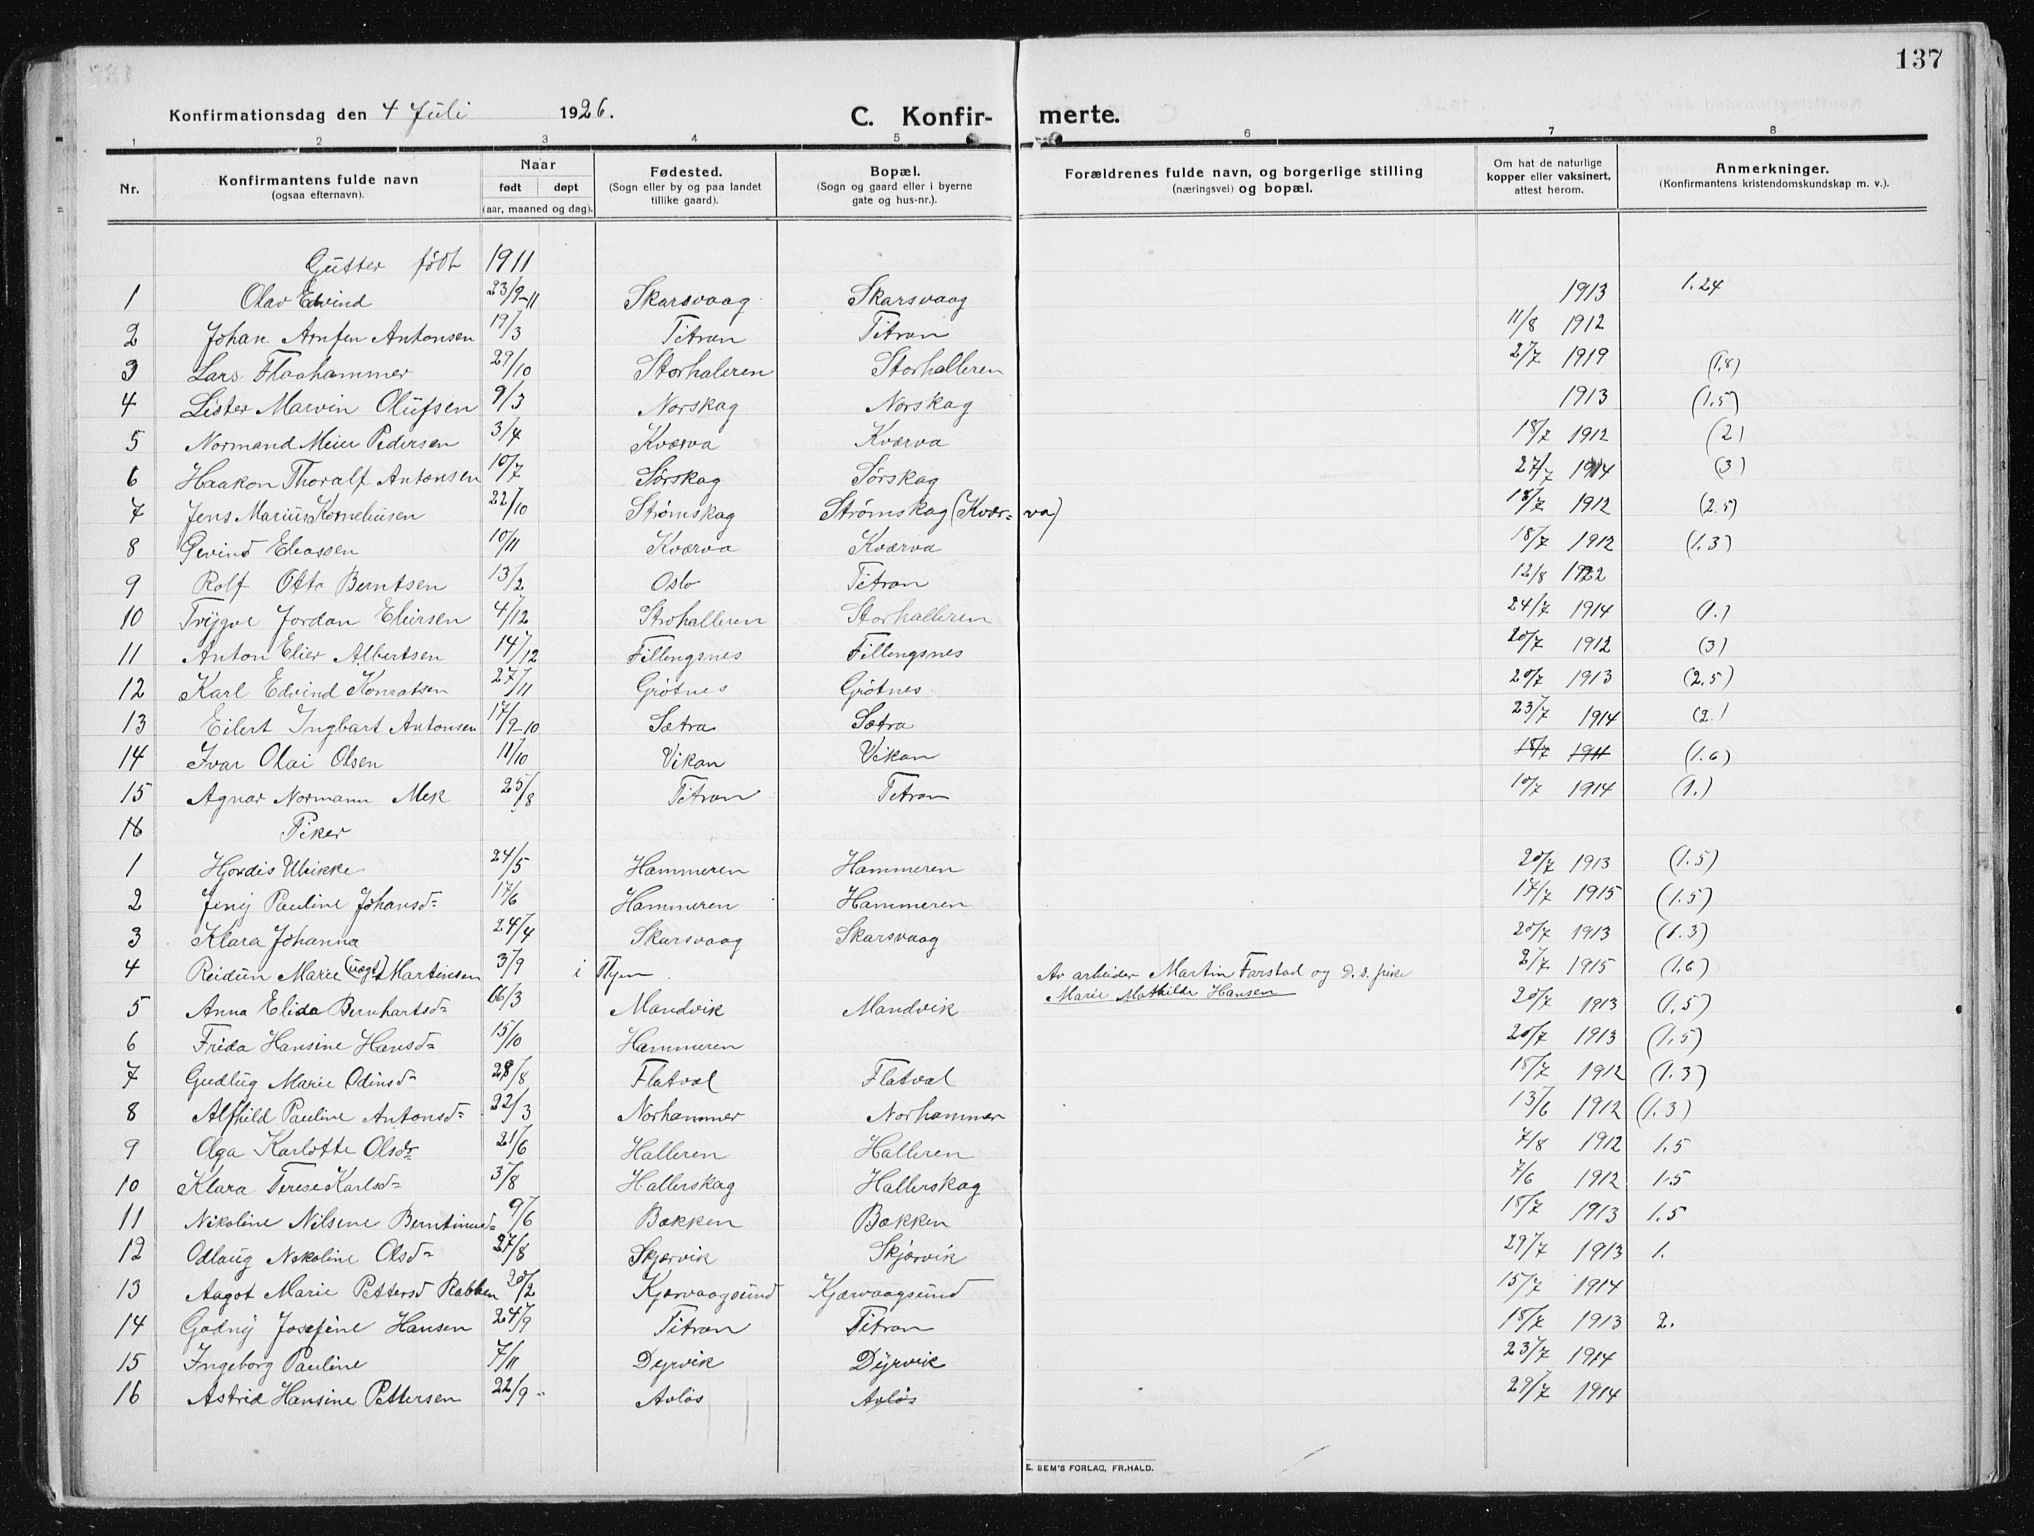 137
Konfirmationsdag den 4 Juli 1926. C. Konfir- merte.
1 2 3 4 5 6 7 8
Nr. Konfirmantens fulde navn (ogsaa efternavn). Naar født døpt (aar, maaned og dag). Fødested. (Sogn eller by og paa landet tillike gaard). Bopæl. (Sogn og gaard eller i byerne gate og hus-nr.). Forældrenes fulde navn, og borgerlige stilling (næringsvei) og bopæl. Om hat de naturlige kopper eller vaksinert, attest herom. Anmerkninger. (Konfirmantens kristendomskundskap m. v.).
Gutter født 1911
1 Olav Edvind 23/9-11 Skarsvaag Skarsvaag 1913 1.24
2 Johan Arnfen Antonsen 19/3 Titran Titran 11/8 1912
3 Lars Flaahammer 29/10 Storhaleren Storhalleren 2/7 1919 (1.8)
4 Lister Marvin Olufsen 9/3 Norskag Norskag 1913 (1.5)
5 Normand Meier Pedersen 3/4 Kværva Kværva 18/7 1912 (2)
6 Haakon Thoralf Antonsen 10/7 Sørskag Sørskag 27/7 1914 (3)
7 Jens Marius Korneliusen 22/10 Strømskag Strømskag (Kvær= va) 18/7 1912 (2.5)
8 Øevind Eliassen 10/11 Kværva Kværva 18/7 1912 (1.3)
9 Rolf Otto Berntsen 13/2 Oslo Titran 12/8 1922
10 Trygve Jordan Eliersen 4/12 Strohalleren Storhalleren 24/7 1914 (1.)
11 Anton Elier Albertsen 14/12 Fillingsnes Fillingsnes 20/7 1912 (3)
12 Karl Edvind Konratsen 27/11 Grøtnes Grøtnes 20/7 1913 (2.5)
13 Eilert Ingbart Antonsen 17/9-10 Sætra Sætra 23/7 1914 (2.)
14 Ivar Olai Olsen 11/10 Vikan Vikan 18/7 1911 (1.6)
15 Agnar Normann Mek 25/8 Titran Titran 10/7 1914 (1.)
16 Piker
1 Hjordis Ulrikke 24/5 Hammeren Hammeren 20/7 1913 (1.5)
2 Jeny Pauline Johansd= 17/6 Hammeren Hammeren 17/7 1915 (1.5)
3 Klara Johanna 24/4 Skarsvaag Skarsvaag 20/7 1913 (1.3)
4 Reidun Marie (uegt) Martinsen 3/9 i Av arbeider Martin Farstad og Marie Mathilde Hansen 2/7 1915 (1.6)
5 Anna Elida Bernhartsd= 16/3 Mandvik Mandvik 20/7 1913 (1.5)
6 Frida Hansine Hansd= 15/10 Hammeren 20/7 1913 (1.5)
7 Gudlug Marie Odinsd= 28/8 Flatval Flatval 18/7 1912 (1.3)
8 Alfhild Pauline Antonsd= 22/3 Norhammer Norhammer 13/6 1912 (1.3)
9 Olga Karlotte Olsdr 21/6 Halleren Halleren 7/8 1912 1.5
10 Klara Terese Karlsd= 3/8 Hallerskag Hallerskag 7/6 1912 1.5
11 Nikoline Nilsine Berntinusd= 9/6 Bækken Bækken 18/7 1913 1.5
12 Odlaug Nikoline Olsd= 27/8 Skjærvik Skjærvik 29/7 1913 1.
13 Aagot Marie Pettersd Rabben 20/2 Kjærvaagsund Kjærvaagsund 15/7 1914
14 Gødny Josefine Hansen 24/9 Titran Titran 18/7 1913 2.
15 Ingeborg Pauline 7/11 Dyrvik Dyrvik 23/7 1914
16 Astrid Hansine Pettersen 22/9 Avløs Avløs 29/7 1914
E. SEM'S FORLAG, FR.HALD.